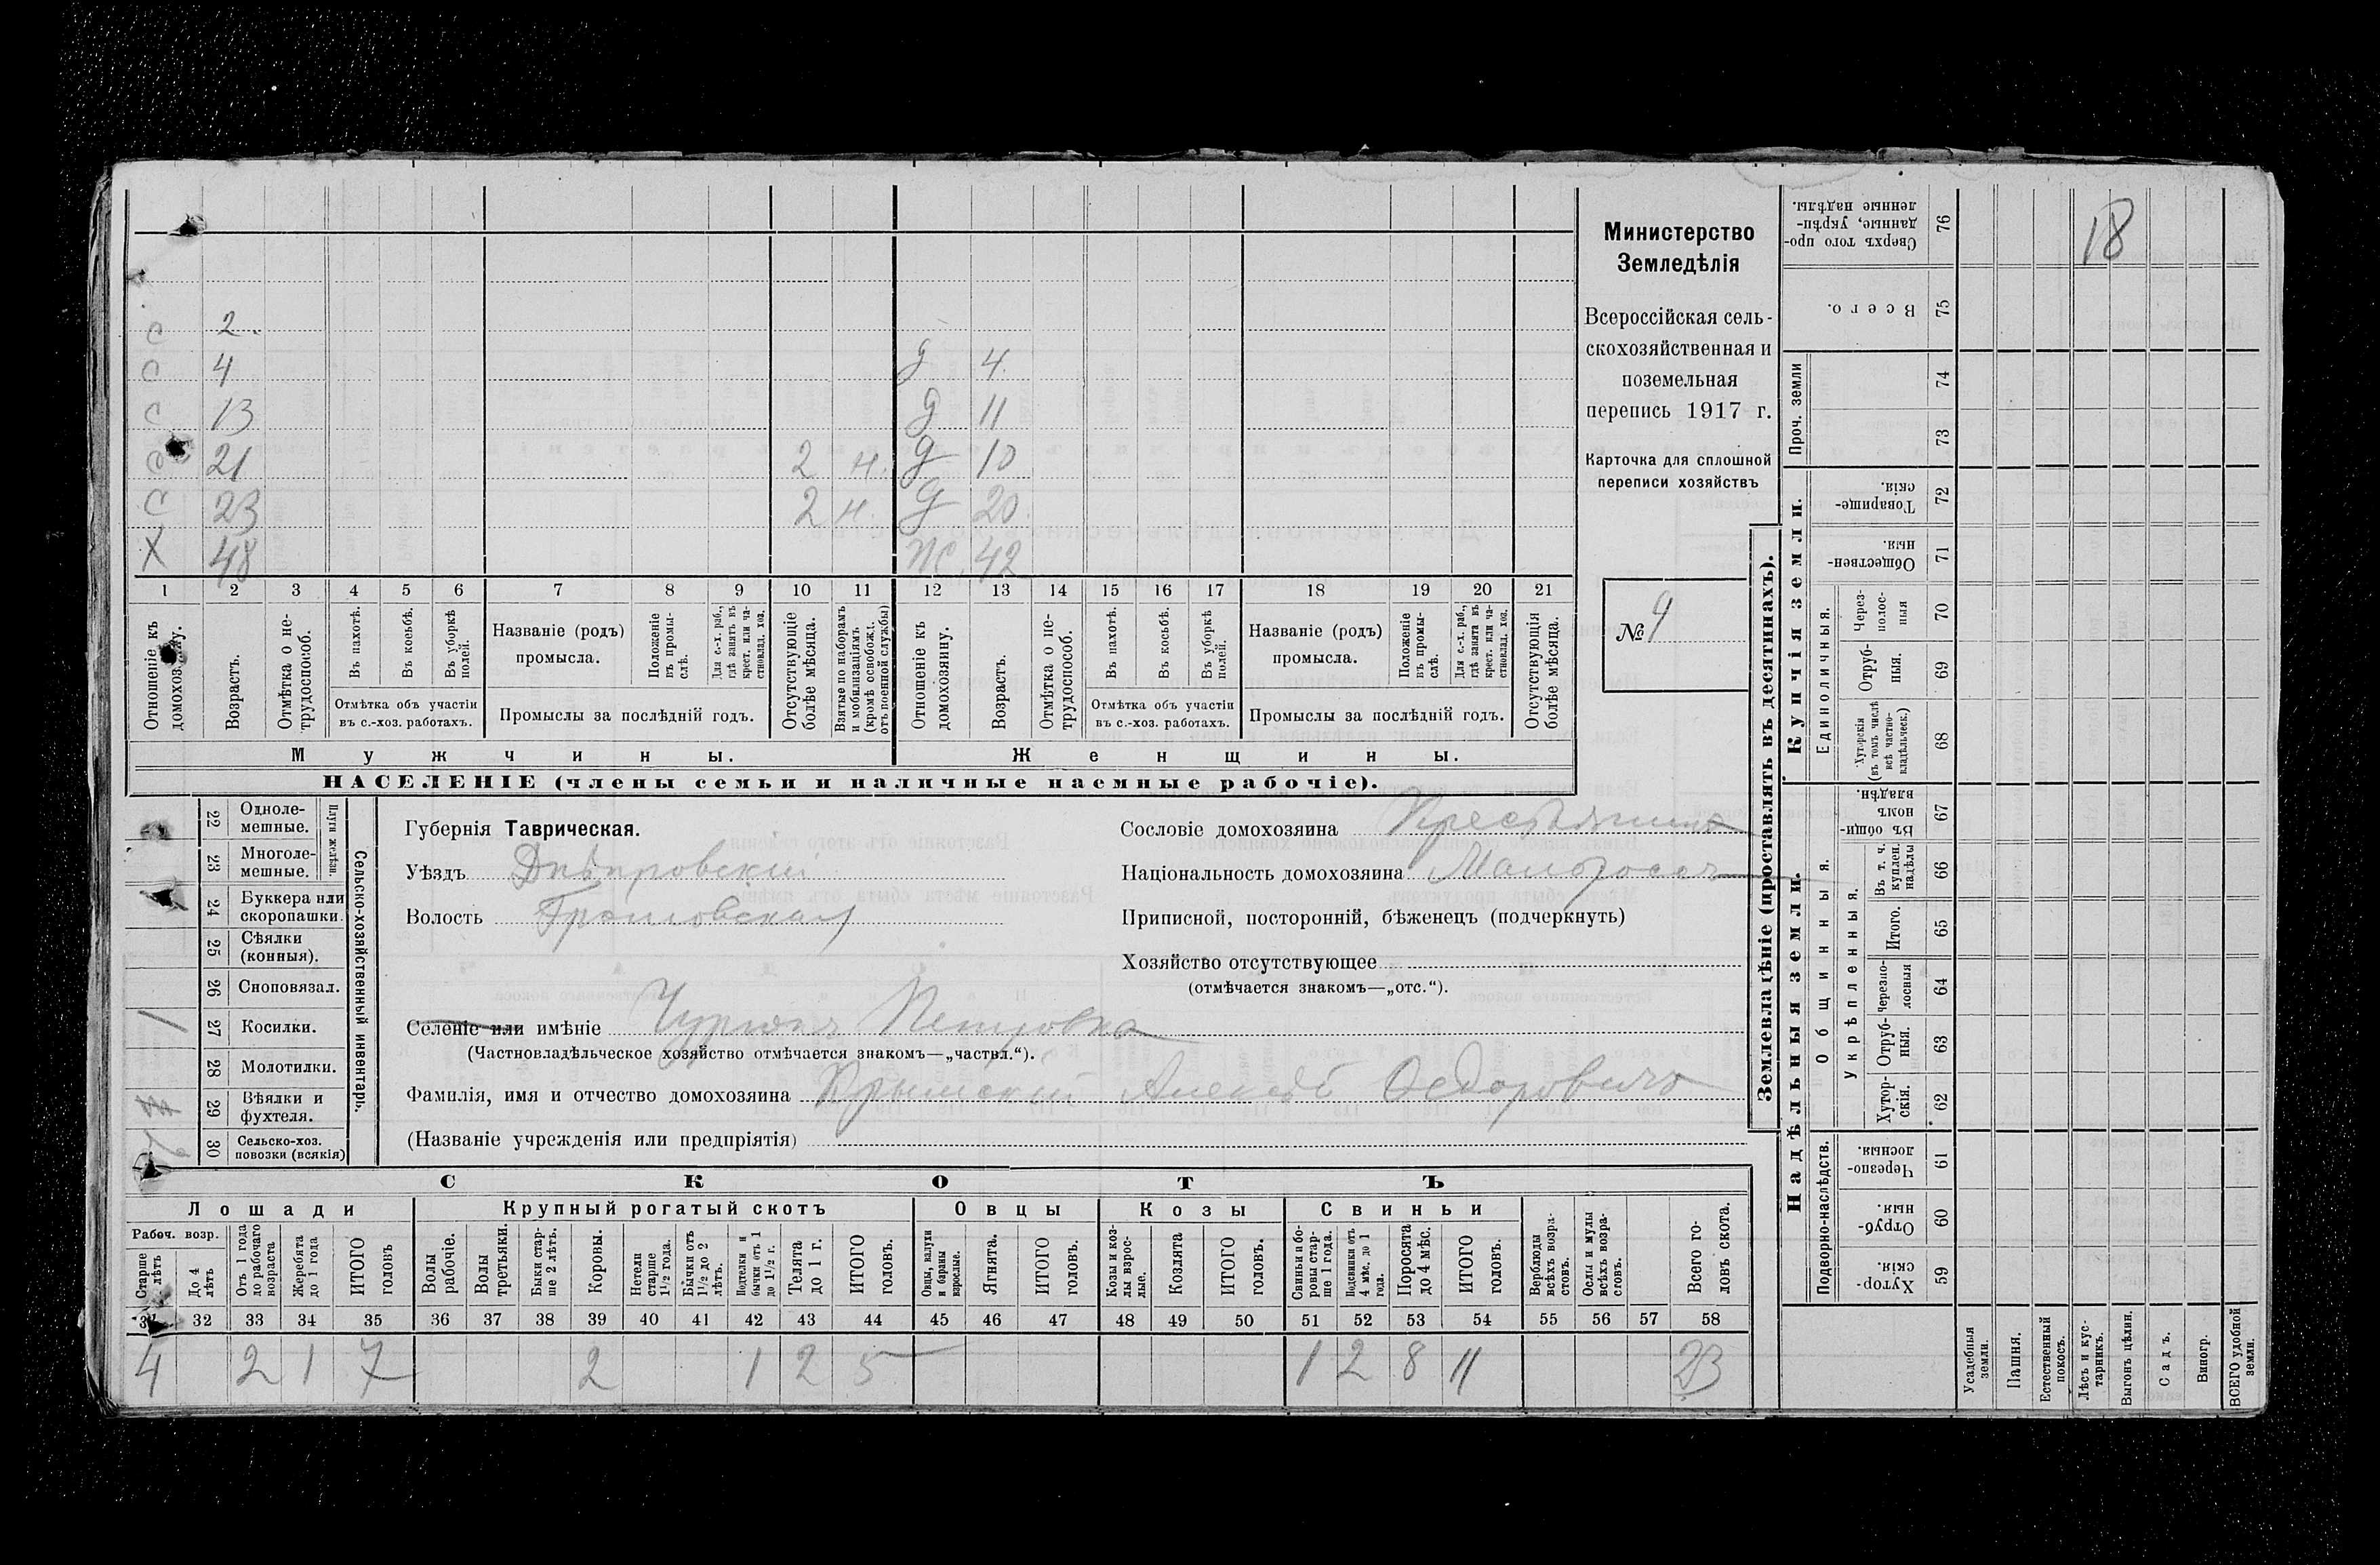 18
С 2
С 4 д 4
С 13 д 11
С 21 2 н. д 10
С 23 2 н. д 20
Х 48 ж. 42
1 2 3 4 5 6 7 8 9 10 11 12 13 14 15 16 17 18 19 20 21
Отношеніе къ домохозяину.
Возрастъ.
Отмѣтка о не-трудоспособ.
Въ пахотѣ.
Въ косьбѣ.
Въ уборкѣ полей.
Отмѣтка объ участіи въ с.-хоз. работахъ.
Названіе (родъ) промысла.
Положеніе въ промы-слѣ.
Для с.-х. раб., гдѣ занятъ въ крест. или ча-стновлад. хоз.
Промыслы за послѣдній годъ.
Отсутствующіе болѣе мѣсяца.
Взятые по наборамъ и мобилизаціямъ (кромѣ освобожд. отъ военной службы)
Отношеніе къ домохозяину.
Возрастъ.
Отмѣтка о не-трудоспособ.
Въ пахотѣ.
Въ косьбѣ.
Въ уборкѣ полей.
Отмѣтка объ участіи въ с.-хоз. работахъ.
Названіе (родъ) промысла.
Положеніе въ промы-слѣ.
Для с.-х. раб., гдѣ занята въ крест. или ча-стновлад. хоз.
Промыслы за послѣдній годъ.
Отсутствующія болѣе мѣсяца.
Мужчины.
Женщины.
НАСЕЛЕНІЕ (члены семьи и наличные наемные рабочіе).
Министерство
Земледѣлія
Всероссійская сель-
скохозяйственная и
поземельная
перепись 1917 г.
Карточка для сплошной
переписи хозяйствъ
№ 9
22 Одноле-мешные.
23 Многоле-мешные.
Плуги желѣзн.
24 Буккера или скоропашки.
25 Сѣялки (конныя).
26 Сноповязал.
27 Косилки. 1
28 Молотилки.
29 Вѣялки и фухтеля.
30 Сельско-хоз. повозки (всякія)
Сельско-хозяйственный инвентарь.
Губернія Таврическая.
Уѣздъ Днѣпровскій
Волость
Сословіе домохозяина Крестьянинъ
Національность домохозяина Малороссъ
Приписной, посторонній, бѣженецъ (подчеркнуть)
Хозяйство отсутствующее
(отмѣчается знакомъ—„отс.“).
Селеніе или имѣніе Чурюкъ Петровка
(Частновладѣльческое хозяйство отмѣчается знакомъ—„частвл.“).
Фамилія, имя и отчество домохозяина Крымскій Алексѣй Федоровичъ
(Названіе учрежденія или предпріятія)
СКОТЪ
Лошади
Крупный рогатый скотъ
Овцы
Козы
Свиньи
Рабоч. возр.
Старше 4 лѣтъ
До 4 лѣтъ
Отъ 1 года до рабочаго возраста
Жеребята до 1 года
ИТОГО головъ
Волы рабочіе.
Волы третьяки.
Быки стар-ше 2 лѣтъ.
Коровы.
Нетели старше 1½ года.
Бычки отъ 1½ до 2 лѣтъ.
Подтелки и бычки отъ 1 до 1½ г.
Телята до 1 г.
ИТОГО головъ.
Овцы, валухи и бараны взрослые.
Ягнята.
ИТОГО головъ.
Козы и коз-лы взрос-лые.
Козлята
ИТОГО головъ.
Свиньи и бо-ровы стар-ше 1 года.
Подсвинки отъ 4 мѣс. до 1 года.
Поросята до 4 мѣс.
ИТОГО головъ.
Верблюды всѣхъ возра-стовъ.
Ослы и мулы всѣхъ возра-стовъ.
Всего го-ловъ скота.
32 33 34 35 36 37 38 39 40 41 42 43 44 45 46 47 48 49 50 51 52 53 54 55 56 57 58
4 2 1 7 2 1 2 5 1 2 8 11 23
Землевладѣніе (проставлять въ десятинахъ).
Надѣльныя земли.
Купчія земли.
Проч. земли
Подворно-наслѣдств.
Общинныя.
Укрѣпленныя.
Единоличныя.
Сверхъ того про-данные, укрѣп-ленные надѣлы. 76
Всего. 75
74
73
Товарище-скія. 72
Обществен-ныя. 71
Через-полос-ныя 70
Отруб-ныя. 69
Хуторскія (въ томъ числѣ всѣ частно-владѣльческ.) 68
Въ общин-номъ владѣн. 67
Въ т. ч. куплен. надѣлы 66
Итого. 65
Черезпо-лосныя 64
Отруб-ныя. 63
Хутор-скія. 62
Черезпо-лосныя. 61
Отруб-ныя. 60
Хутор-скія. 59
Усадебныя земли.
Пашня.
Естественный покосъ.
Лѣсъ и кус-тарникъ.
Выгонъ цѣлин.
Садъ.
Виногр.
ВСЕГО удобной земли.